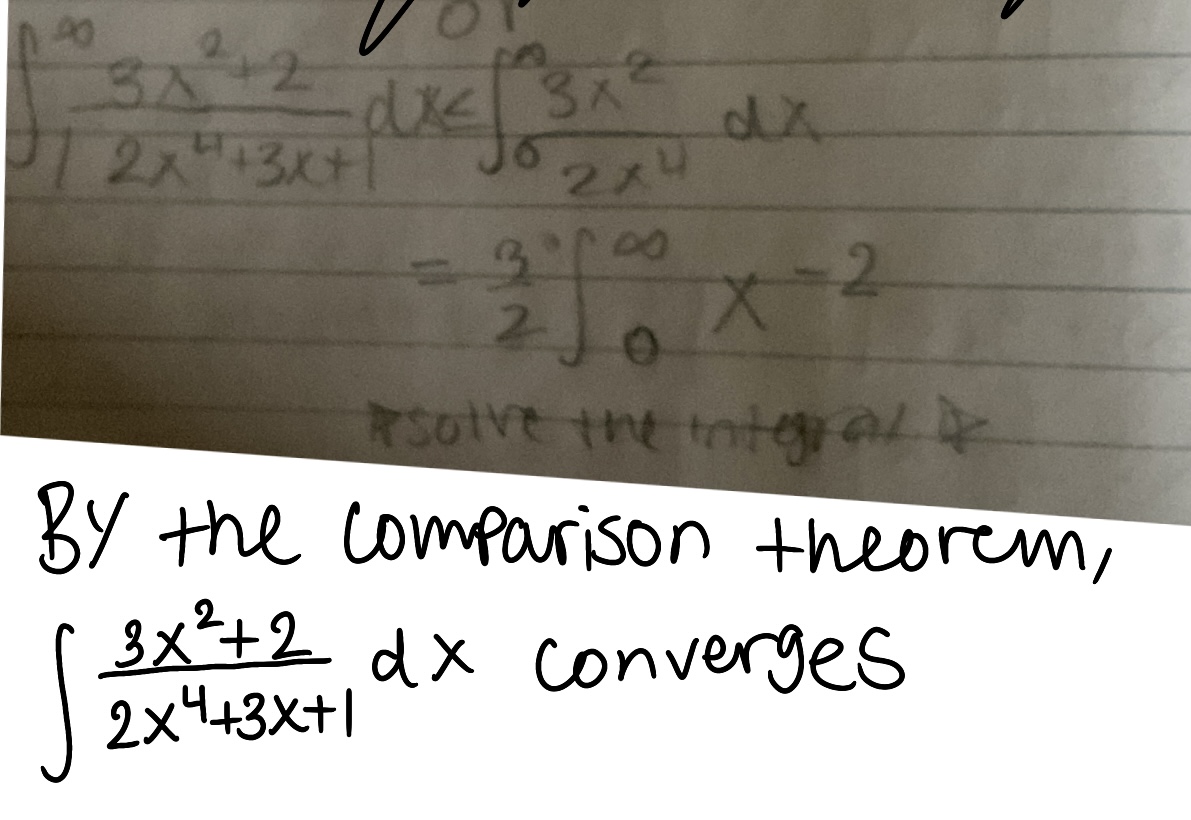 or
∫₁^∞ (3x²+2)/(2x⁴+3x+1) dx < ∫₀^∞ 3x²/2x⁴ dx
= 3/2 ∫₀^∞ x⁻²
solve the integral
By the comparison theorem,
∫ (3x²+2)/(2x⁴+3x+1) dx converges